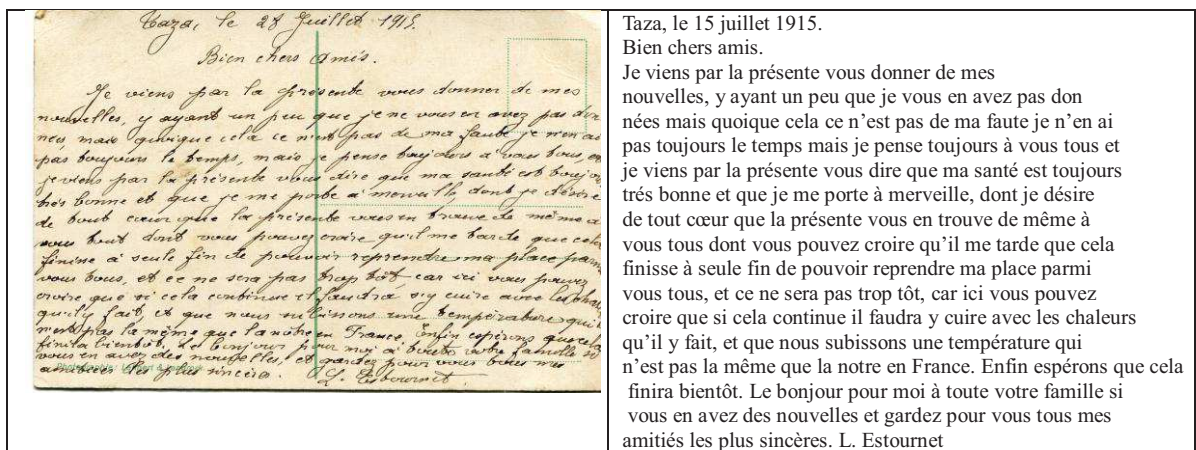 Taza, le 28 Juillet 1915.
Bien chers Amis.
Je viens par la présente vous donner de mes
nouvelles, y ayant un peu que je ne vous en avez pas don
nées, mais quoique cela ce n'est pas de ma faute je n'en ai
pas toujours le temps, mais je pense toujours à vous tous, et
je viens par la présente vous dire que ma santé est toujours
très bonne et que je me porte à merveille, dont je désire
de tout cœur que la présente vous en trouve de même à
vous tout dont vous pouvez croire qu'il me tarde que cela
finise à seule fin de pouvoir reprendre ma place parmi
vous tous, et ce ne sera pas trop tôt car ici vous pouvez
croire que si cela continue il faudra s'y cuire avec les chal
qu'il y fait, et que nous subissons une température qui
n'est pas la même que la nôtre en France. Enfin espérons que cela
finira bientôt. Le bonjour pour moi à toute votre famille si
vous en avez des nouvelles, et gardez pour vous tous mes
amitiés les plus sincères. L. Estournet
Taza, le 15 juillet 1915.
Bien chers amis.
Je viens par la présente vous donner de mes
nouvelles, y ayant un peu que je vous en avez pas don
nées mais quoique cela ce n’est pas de ma faute je n’en ai
pas toujours le temps mais je pense toujours à vous tous et
je viens par la présente vous dire que ma santé est toujours
trés bonne et que je me porte à merveille, dont je désire
de tout cœur que la présente vous en trouve de même à
vous tous dont vous pouvez croire qu’il me tarde que cela
finisse à seule fin de pouvoir reprendre ma place parmi
vous tous, et ce ne sera pas trop tôt, car ici vous pouvez
croire que si cela continue il faudra y cuire avec les chaleurs
qu’il y fait, et que nous subissons une température qui
n’est pas la même que la notre en France. Enfin espérons que cela
finira bientôt. Le bonjour pour moi à toute votre famille si
vous en avez des nouvelles et gardez pour vous tous mes
amitiés les plus sincères. L. Estournet